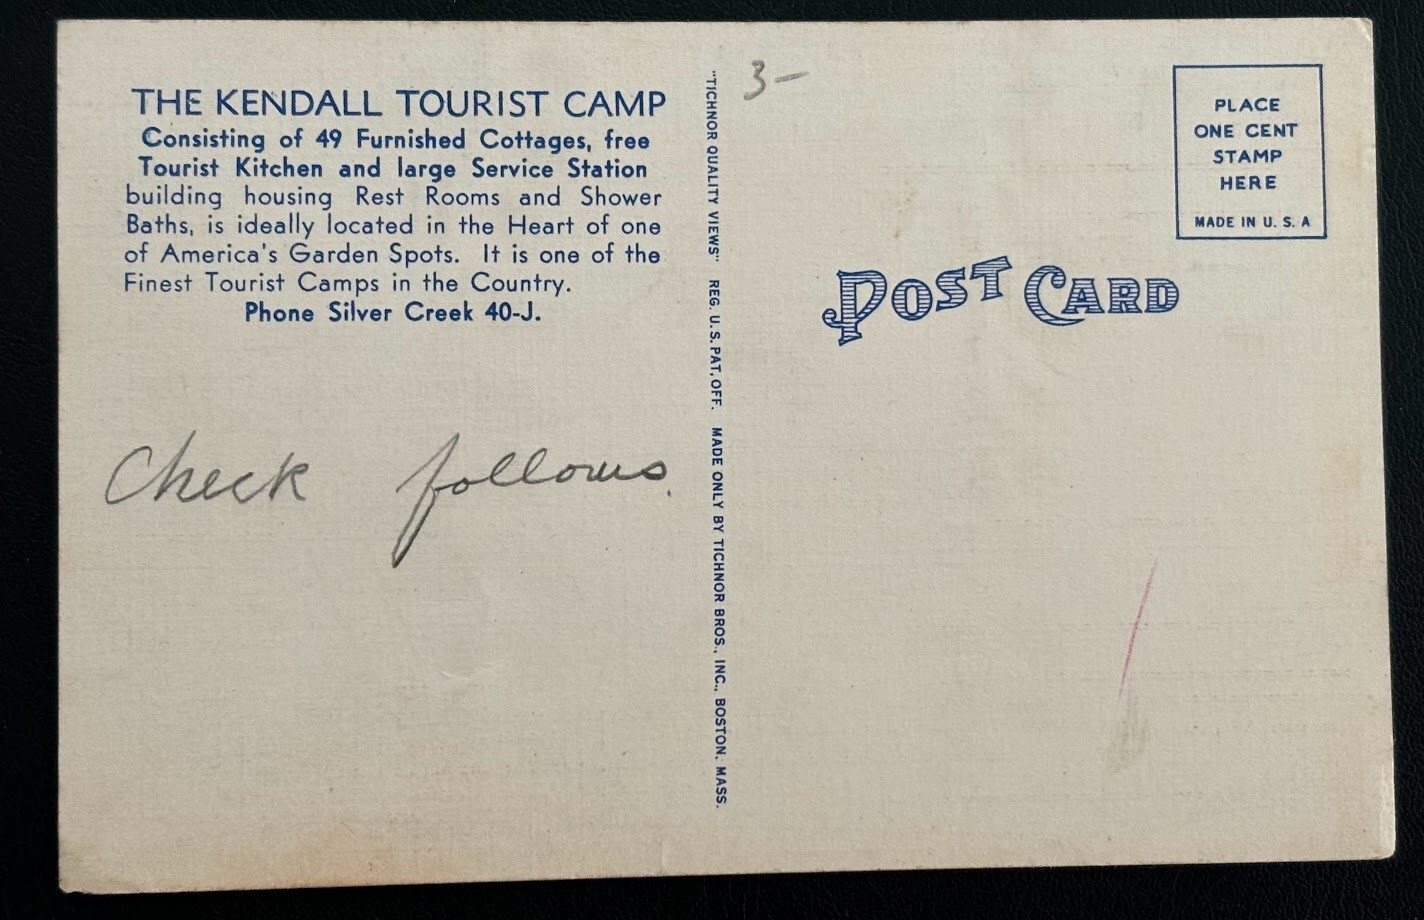 THE KENDALL TOURIST CAMP
Consisting of 49 Furnished Cottages, free
Tourist Kitchen and large Service Station
building housing Rest Rooms and Shower
Baths, is ideally located in the Heart of one
of America's Garden Spots. It is one of the
Finest Tourist Camps in the Country.
Phone Silver Creek 40-J.
Check follows.
"TICHNOR QUALITY VIEWS" REG. U. S. PAT. OFF. MADE ONLY BY TICHNOR BROS., INC., BOSTON, MASS.
3-
PLACE
ONE CENT
STAMP
HERE
MADE IN U. S. A
POST CARD